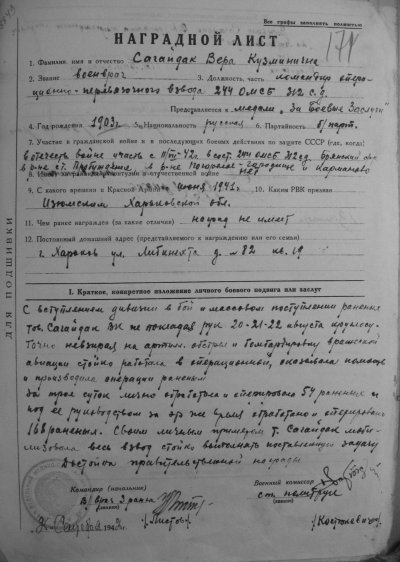 Все графы заполнять полностью
171
НАГРАДНОЙ ЛИСТ
1. Фамилия, имя и отчество Сагайдак Вера Кузминична
2. Звание военврач 3. Должность, часть командир опера-
ционно-перевязочного взвода 244 ОМСБ 312 с.д.
Представляется к медали „За боевые заслуги"
4. Год рождения 1903 г. 5. Национальность русская 6. Партийность б/парт.
7. Участие в гражданской войне и в последующих боевых действиях по защите СССР (где, когда)
в отечеств войне участв. с
8. Имеет ли ранения и контузии в отечественной войне нет
9. С какого времени в Красной Армии июня 1941 г. 10. Каким РВК призван
Изюмским Харьковской обл.
11. Чем ранее награжден (за какие отличия) наград не имеет
12. Постоянный домашний адрес (представляемого к награждению или его семьи)
г. Харьков ул. Либкнехта д. № 82 кв. 19
I. Краткое, конкретное изложение личного боевого подвига или заслуг
С вступлением дивизии в бой и массовом поступлении раненых
тов. Сагайдак ВК не покладая рук 20-21-22 августа круглосу-
точно невзирая на артил. обстрел и бомбардировку вражеской
авиации стойко работала в операционной, оказывала помощь
и производила операции раненым
За трое суток лично отработала и оперировала 54 раненых и
под ее руководством за это же время отработано и оперировано
168 ранения. Своим личным примером т. Сагайдак моби-
лизовала весь взвод стойко выполнять поставленную задачу
Достойна правительственной награды
Командир (начальник)
В/врач 3 ранга
(звание)
Военный комиссар
ст. политрук
(звание)
/Листов/
/Костюкевич/
1942 г.
ДЛЯ ПОДШИВКИ